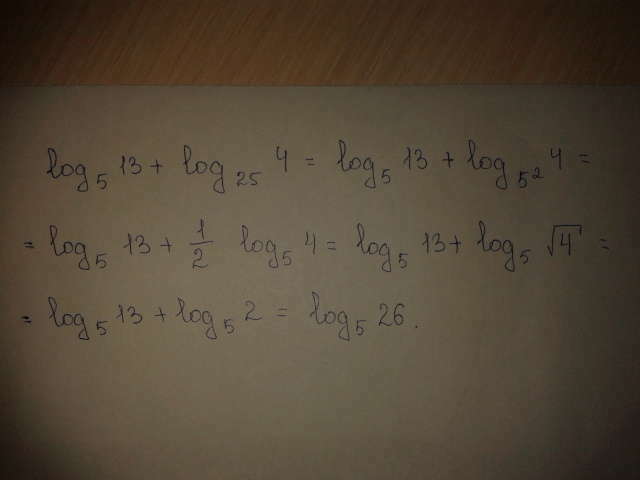 log₅ 13 + log₂₅ 4 = log₅ 13 + log₅² 4 =
= log₅ 13 + 1/2 log₅ 4 = log₅ 13 + log₅ √4 =
= log₅ 13 + log₅ 2 = log₅ 26.